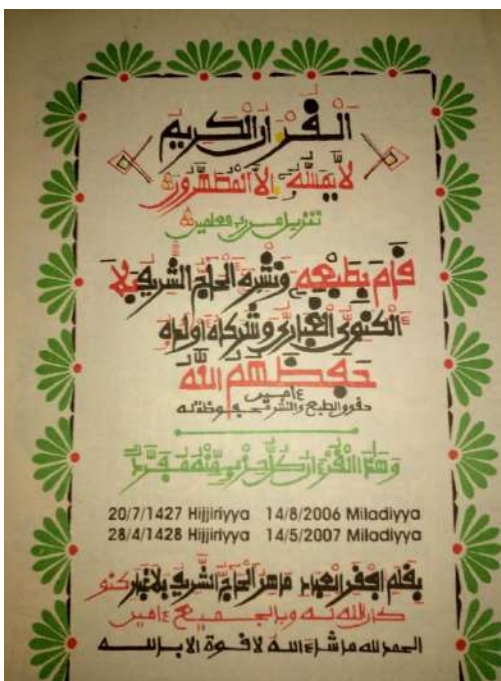 الفرءان الكريم
لا يمسه إلا المطهرون
تنزيل من رب العلمين
فام بطبعه ونشره الحاج الشريف بلا
الكنوي الغباري وشركاه اولاده
حفظهم الله
ءامين
حفوف الطبع والنشر محفوظة له
وهذا الفرءان كل حزب منه
20/7/1427 Hijjiriyya 14/8/2006 Miladiyya
28/4/1428 Hijjiriyya 14/5/2007 Miladiyya
بفلم افقر العبيد الحاج الشريف بلا غبار كنو
كان الله له وبالجميع ءامين
الحمد لله ما شاء الله لا فوة الا بالله